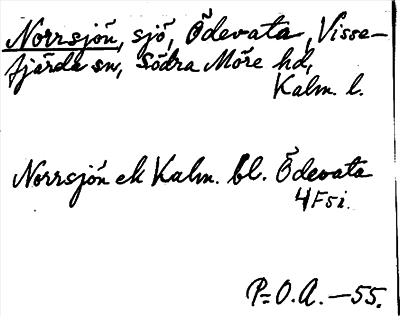 Norrsjön, sjö, Ödevata, Visse-
fjärda sn, Södra Möre hd,
Kalm. l.
Norrsjön ek Kalm. bl. Ödevata
4F5i.
P=O.A.—55.